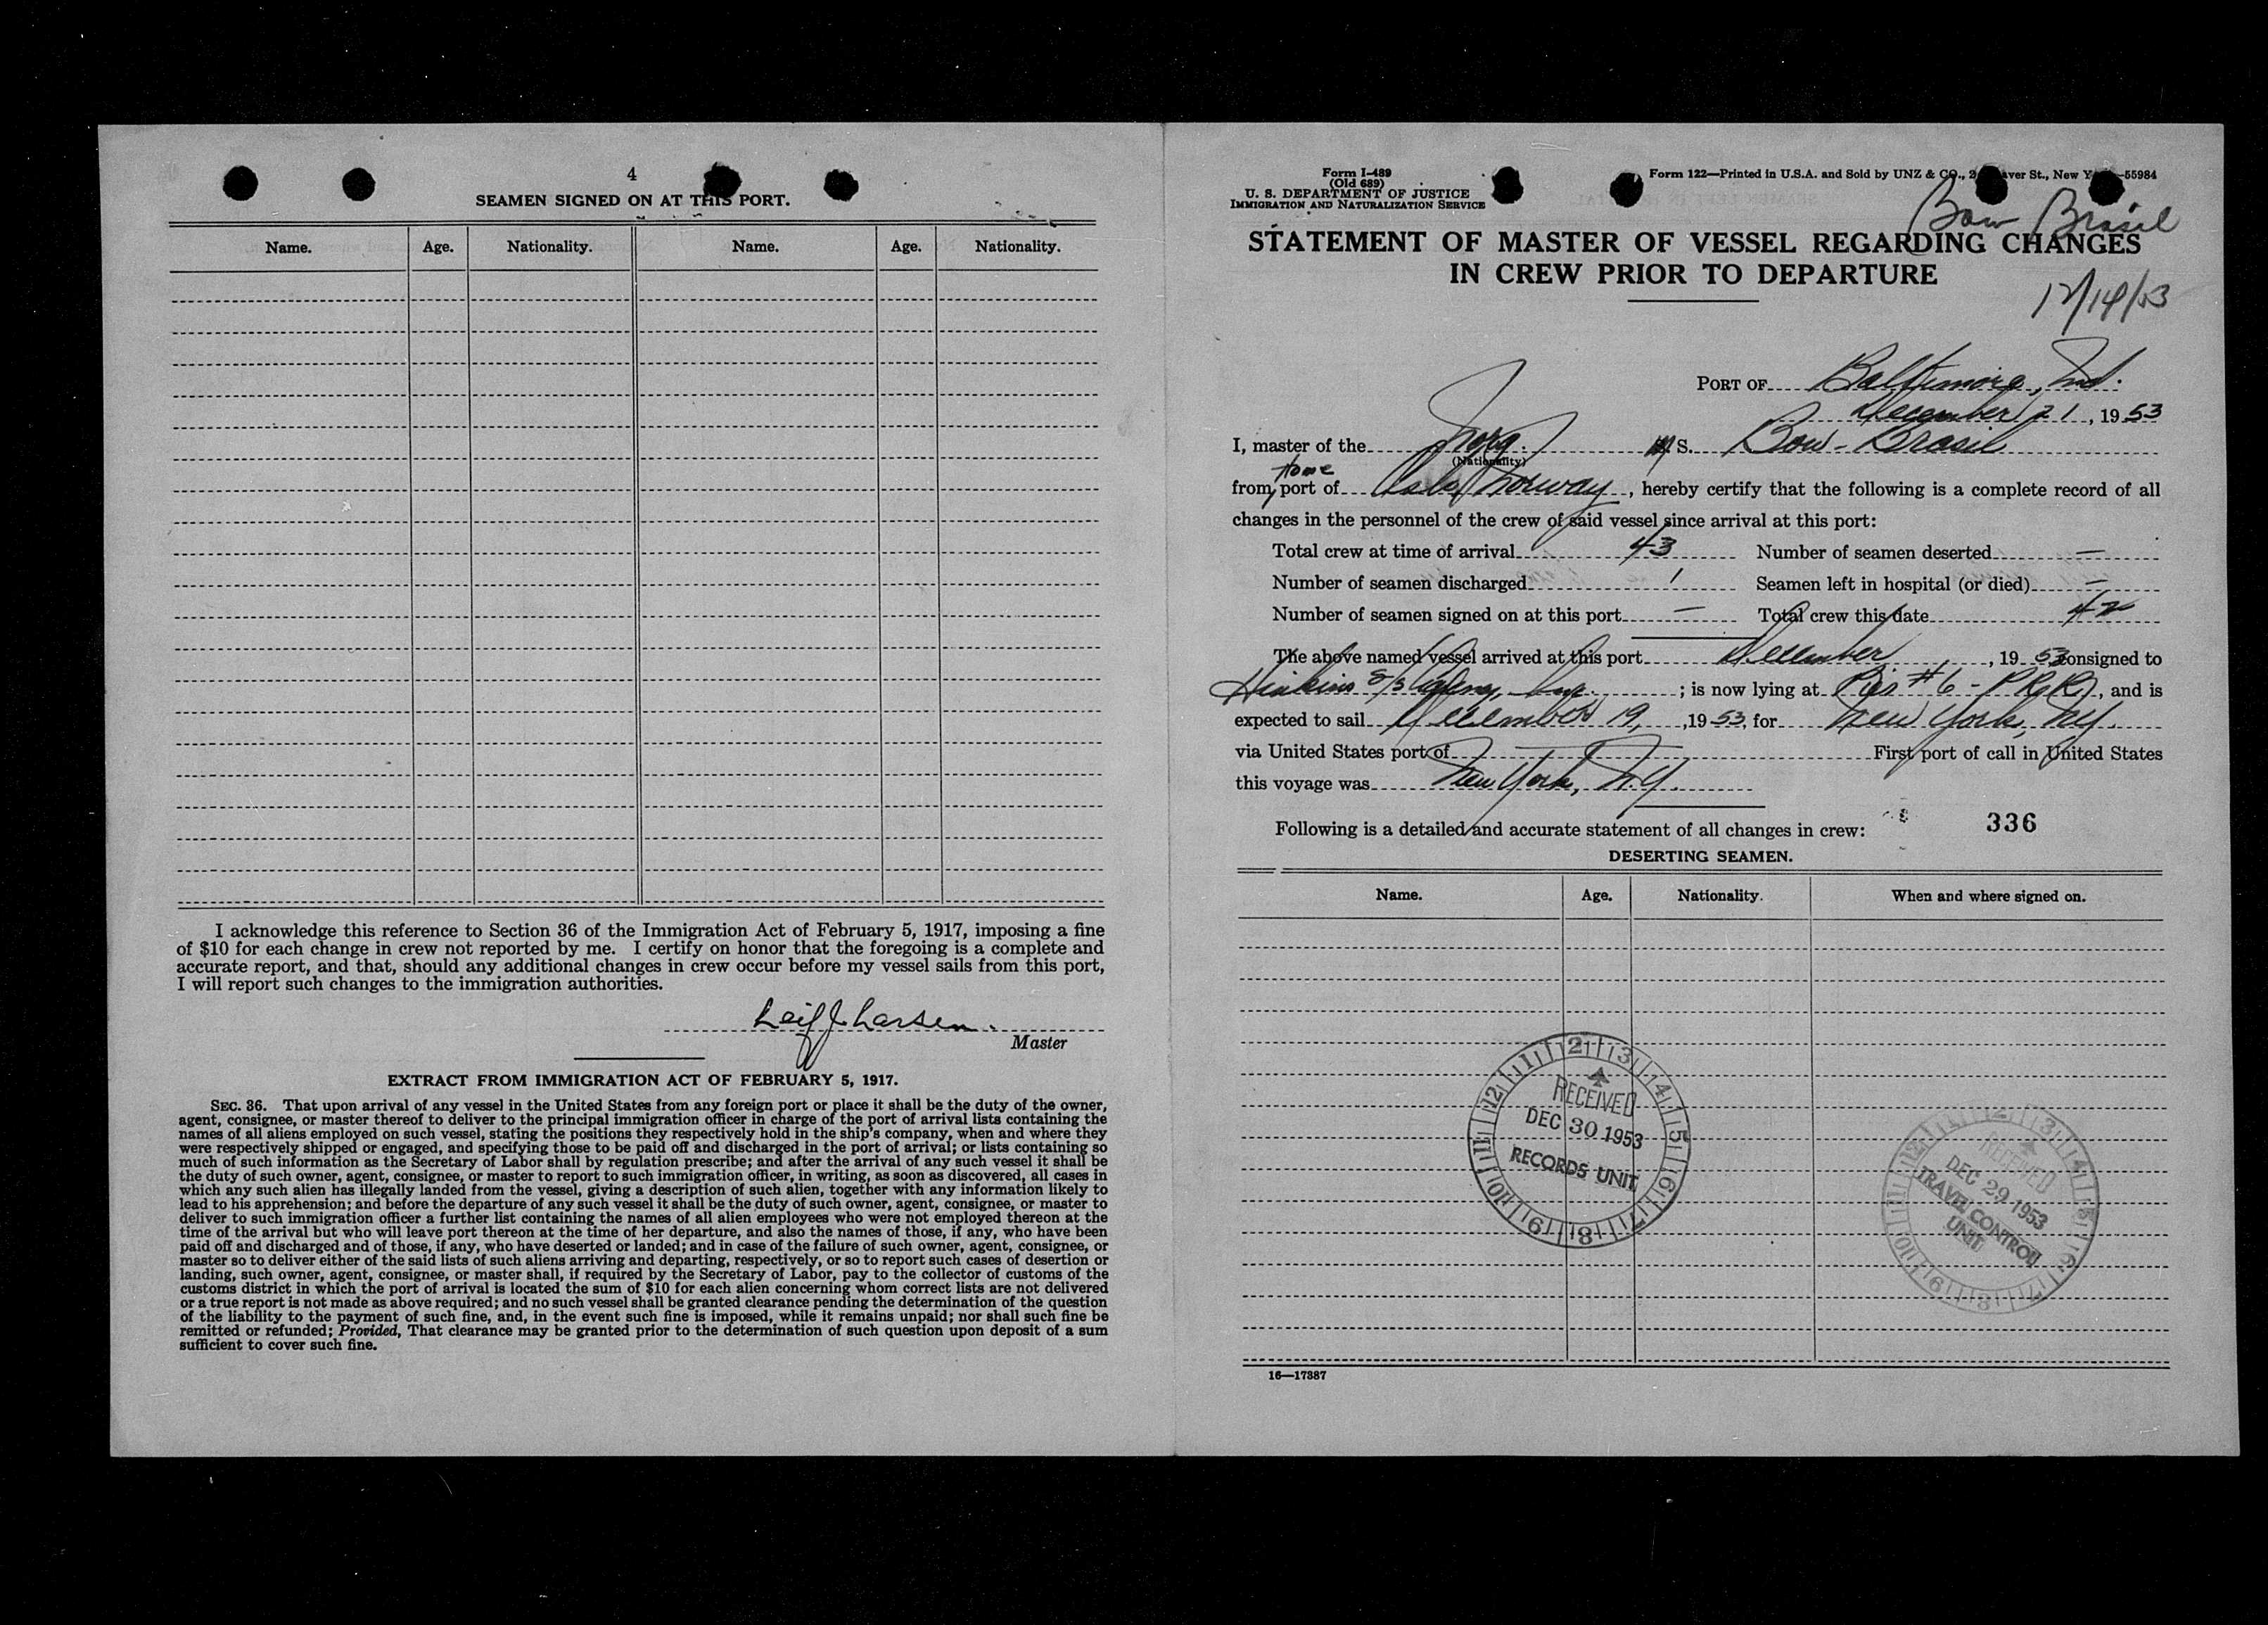 4
SEAMEN SIGNED ON AT THIS PORT.
Name. Age. Nationality. Name. Age. Nationality.
I acknowledge this reference to Section 36 of the Immigration Act of February 5, 1917, imposing a fine
of $10 for each change in crew not reported by me. I certify on honor that the foregoing is a complete and
accurate report, and that, should any additional changes in crew occur before my vessel sails from this port,
I will report such changes to the immigration authorities.
Leif J. Larsen.
Master
EXTRACT FROM IMMIGRATION ACT OF FEBRUARY 5, 1917.
SEC. 36. That upon arrival of any vessel in the United States from any foreign port or place it shall be the duty of the owner,
agent, consignee, or master thereof to deliver to the principal immigration officer in charge of the port of arrival lists containing the
names of all aliens employed on such vessel, stating the positions they respectively hold in the ship's company, when and where they
were respectively shipped or engaged, and specifying those to be paid off and discharged in the port of arrival; or lists containing so
much of such information as the Secretary of Labor shall by regulation prescribe; and after the arrival of any such vessel it shall be
the duty of such owner, agent, consignee, or master to report to such immigration officer, in writing, as soon as discovered, all cases in
which any such alien has illegally landed from the vessel, giving a description of such alien, together with any information likely to
lead to his apprehension; and before the departure of any such vessel it shall be the duty of such owner, agent, consignee, or master to
deliver to such immigration officer a further list containing the names of all alien employees who were not employed thereon at the
time of the arrival but who will leave port thereon at the time of her departure, and also the names of those, if any, who have been
paid off and discharged and of those, if any, who have deserted or landed; and in case of the failure of such owner, agent, consignee, or
master so to deliver either of the said lists of such aliens arriving and departing, respectively, or so to report such cases of desertion or
landing, such owner, agent, consignee, or master shall, if required by the Secretary of Labor, pay to the collector of customs of the
customs district in which the port of arrival is located the sum of $10 for each alien concerning whom correct lists are not delivered
or a true report is not made as above required; and no such vessel shall be granted clearance pending the determination of the question
of the liability to the payment of such fine, and, in the event such fine is imposed, while it remains unpaid; nor shall such fine be
remitted or refunded; Provided, That clearance may be granted prior to the determination of such question upon deposit of a sum
sufficient to cover such fine.
Form I-489
(Old 689)
U. S. DEPARTMENT OF JUSTICE
IMMIGRATION AND NATURALIZATION SERVICE
Form 122—Printed in U.S.A. and Sold by UNZ & CO., 2 aver St., New Y —55984
Bow Brasil
STATEMENT OF MASTER OF VESSEL REGARDING CHANGES
IN CREW PRIOR TO DEPARTURE
12/14/53
PORT OF Baltimore, Md.
December 21, 1953
I, master of the Norg. M S. Bow-Brasil
(Nationality)
from Home port of Oslo Norway, hereby certify that the following is a complete record of all
changes in the personnel of the crew of said vessel since arrival at this port:
Total crew at time of arrival 43 Number of seamen deserted —
Number of seamen discharged 1 Seamen left in hospital (or died) —
Number of seamen signed on at this port — Total crew this date 42
The above named vessel arrived at this port December, 1953 consigned to
Hinkins S/S Agency, Inc.; is now lying at Pier #6 - PRR, and is
expected to sail December 19, 1953, for New York, NY.
via United States port of — First port of call in United States
this voyage was New York, N.Y.
Following is a detailed and accurate statement of all changes in crew: 336
DESERTING SEAMEN.
Name. Age. Nationality. When and where signed on.
12 1 2 3 4 5 6 7 8 9 10 11
RECEIVED
DEC 30 1953
RECORDS UNIT
RECEIVED
DEC 29 1953
TRAVEL CONTROL
UNIT
16—17387